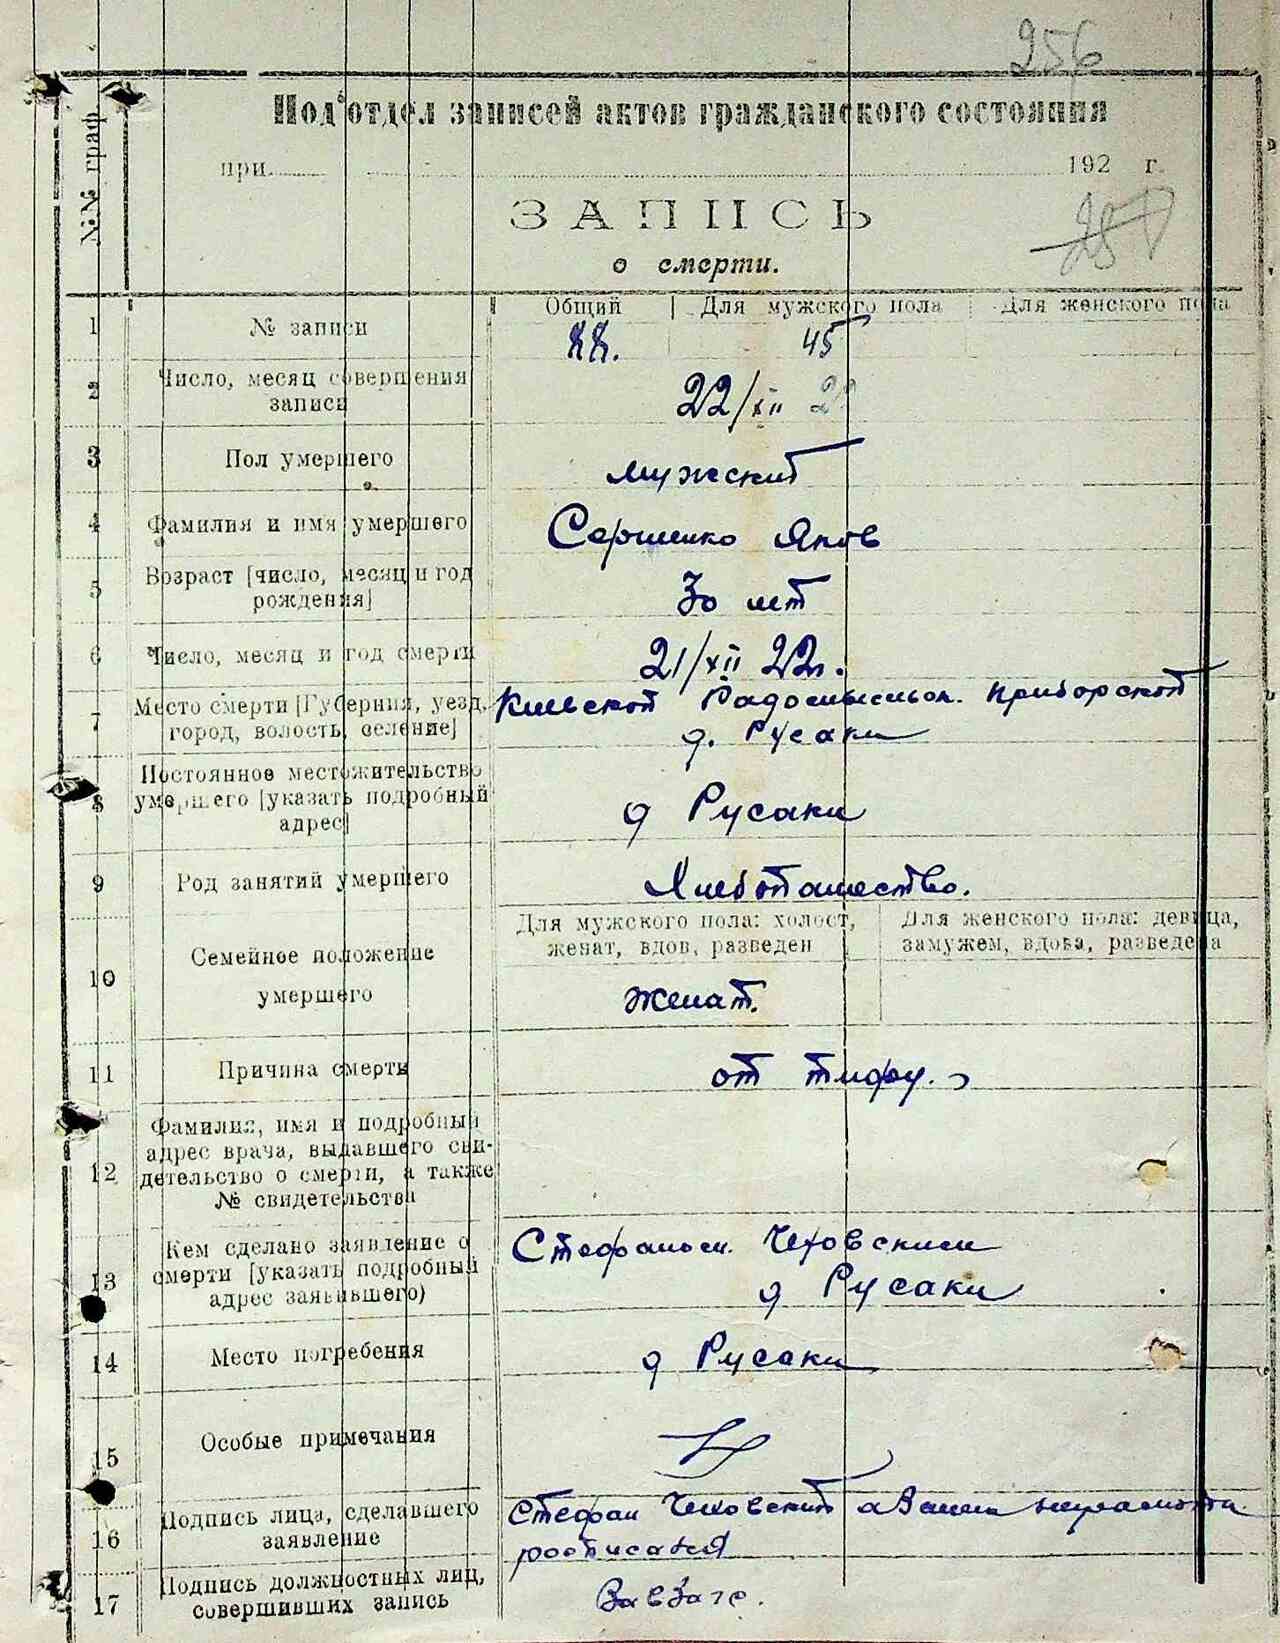 256
Подотдел записей актов гражданского состояния
при 192 г.
№№ граф
ЗАПИСЬ
о смерти.
Общий Для мужского пола Для женского пола
1 № записи 45
2 Число, месяц совершения записи 22/XII 22
3 Пол умершего мужский
4 Фамилия и имя умершего Сергиенко Яков
5 Возраст [число, месяц и год рождения] 30 лет
6 Число, месяц и год смерти 21/XII 22г.
7 Место смерти [Губерния, уезд, город, волость, селение] Киевской Радомысльск. Приборской
д. Русаки
8 Постоянное местожительство умершего [указать подробный адрес] д Русаки
9 Род занятий умершего Хлебопашество.
10 Семейное положение умершего
Для мужского пола: холост, женат, вдов, разведен
Для женского пола: девица, замужем, вдова, разведена
женат.
11 Причина смерти от тифу.
12 Фамилия, имя и подробный адрес врача, выдавшего свидетельство о смерти, а также № свидетельства
13 Кем сделано заявление о смерти [указать подробный адрес заявившего) Стефаном Чеховским
д Русаки
14 Место погребения д Русаки
15 Особые примечания
16 Подпись лица, сделавшего заявление Стефан Чеховский а За него неграмотн
росписался
17 Подпись должностных лиц, совершивших запись ЗавЗагс.